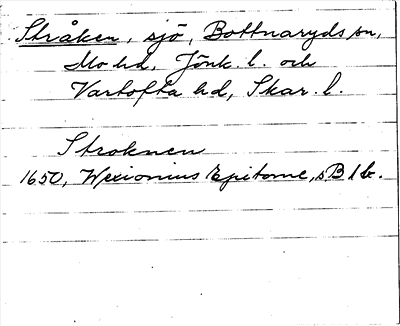 Stråken, sjö, Bottnaryds sn,
Mo hd, Jönk. l. och
Vartofta hd, Skar. l.
Stroknen
1650, Wexionius Epitome, s B 1 b.